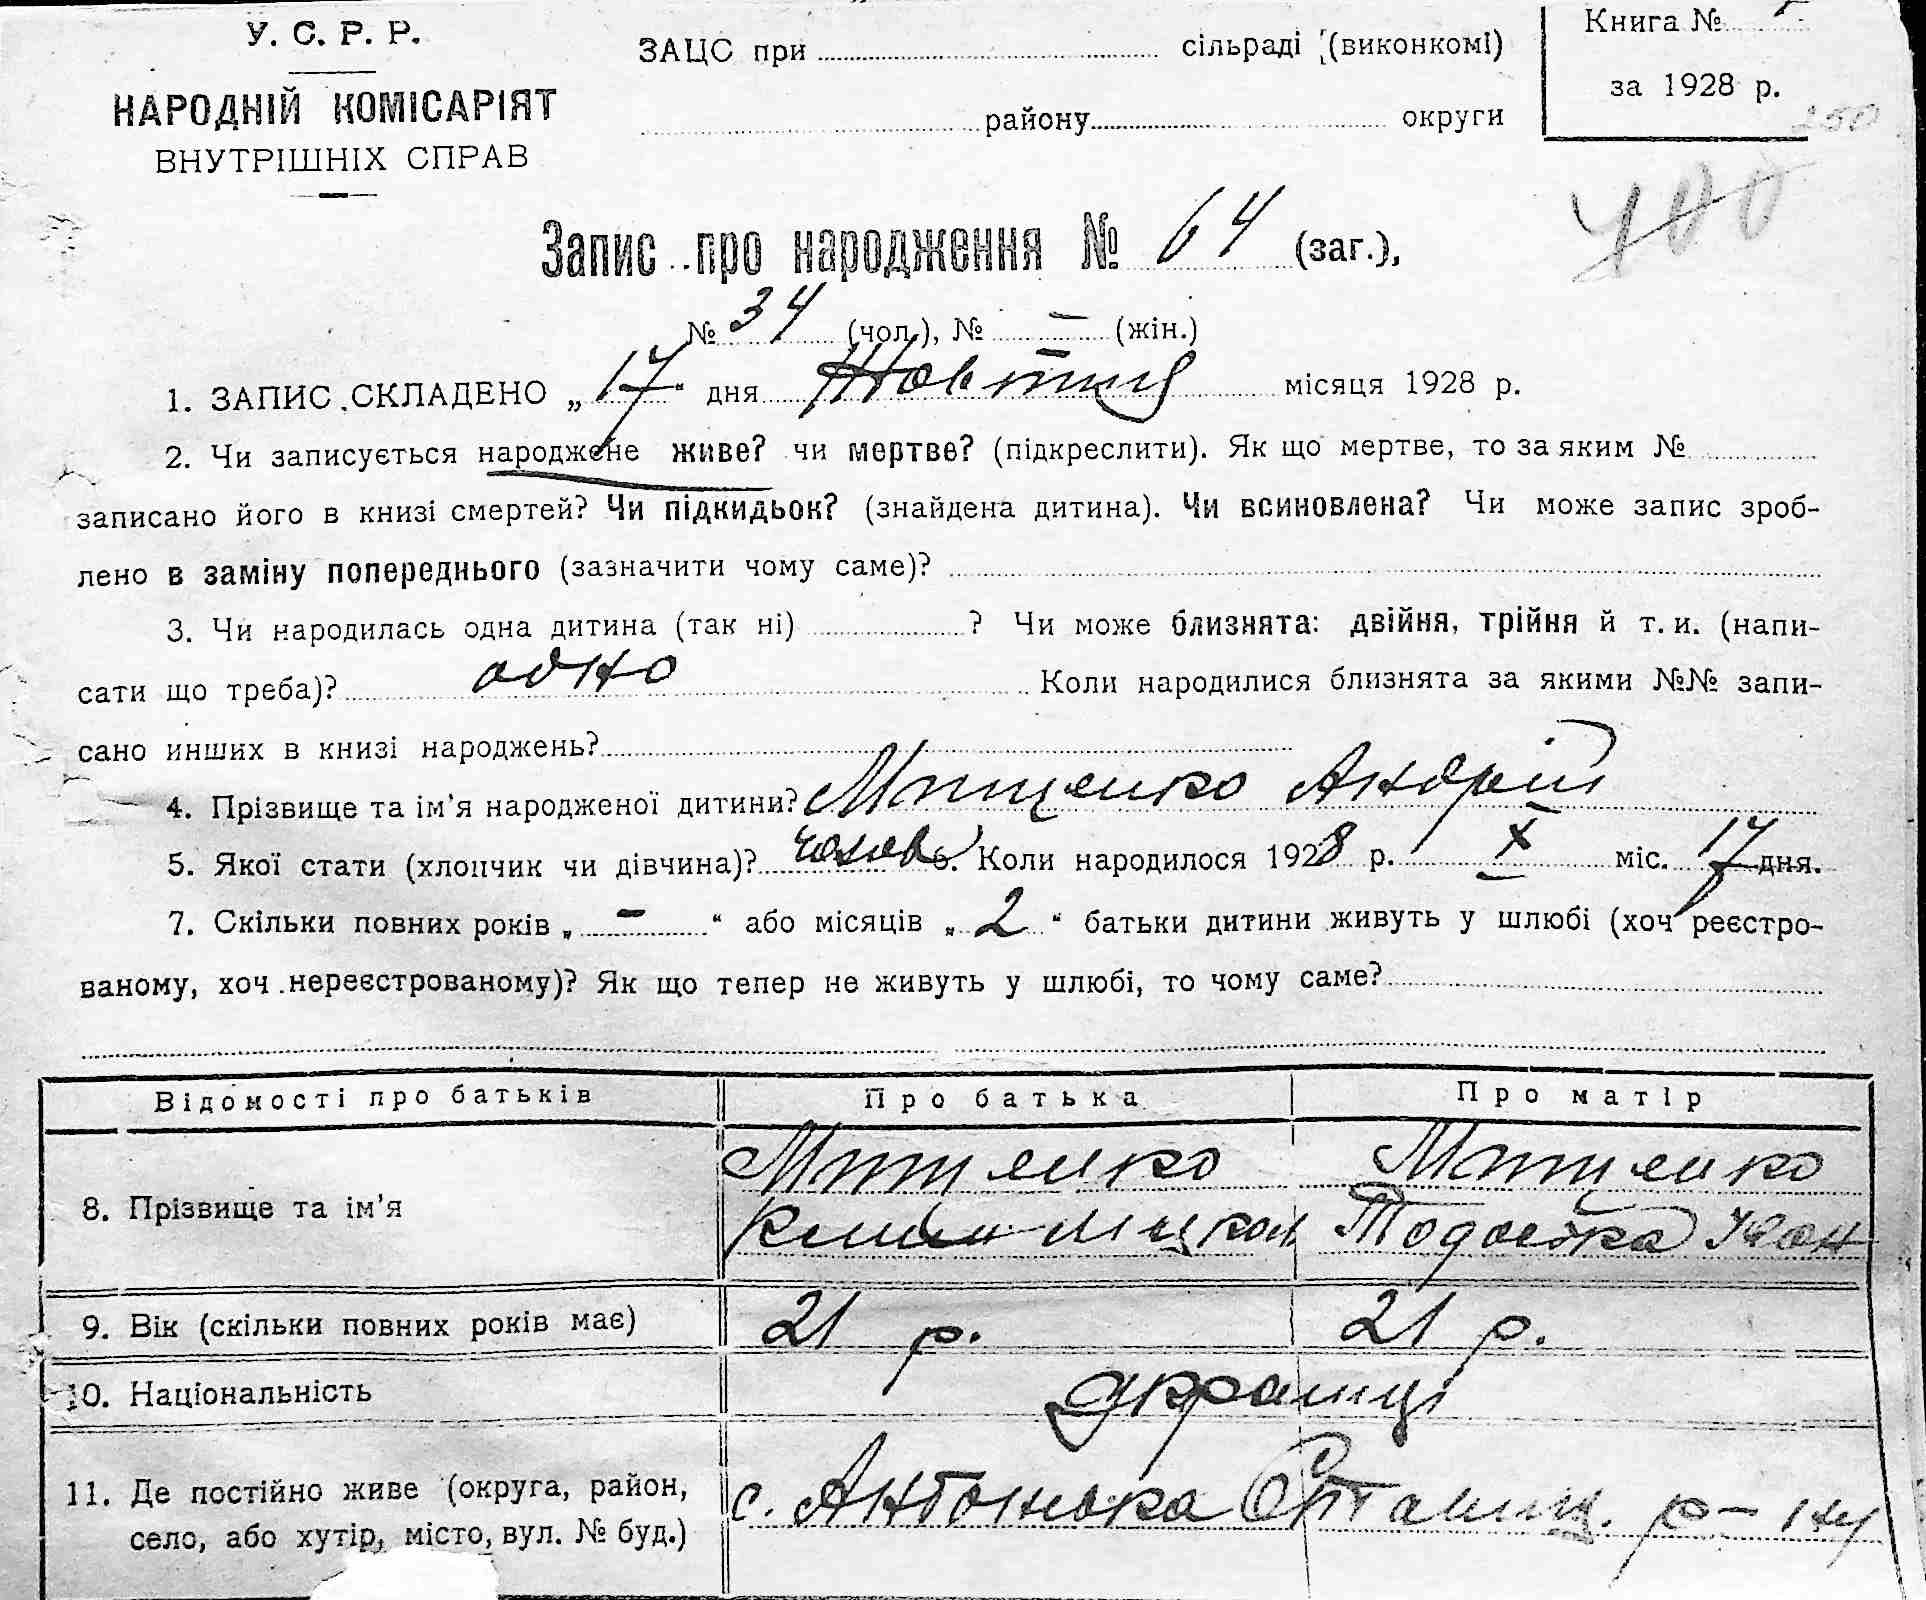 У. С. Р. Р.
НАРОДНІЙ КОМІСАРІЯТ
ВНУТРІШНІХ СПРАВ
ЗАЦС при сільраді (виконкомі)
району округи
Книга №
за 1928 р.
250
400
Запис про народження № 64 (заг.),
№ 34 (чол.), № – (жін.)
1. ЗАПИС СКЛАДЕНО „17" дня Жовтня місяця 1928 р.
2. Чи записується народжене живе? чи мертве? (підкреслити). Як що мертве, то за яким №
записано його в книзі смертей? Чи підкидьок? (знайдена дитина). Чи всиновлена? Чи може запис зроб-
лено в заміну попереднього (зазначити чому саме)?
3. Чи народилась одна дитина (так ні) ? Чи може близнята: двійня, трійня й т. и. (напи-
сати що треба)? одно Коли народилися близнята за якими №№ запи-
сано инших в книзі народжень?
4. Прізвище та ім'я народженої дитини? Мищенко Андрій
5. Якої стати (хлопчик чи дівчина)? 6. Коли народилося 1928 р. X міс. 17 дня.
7. Скільки повних років „ – " або місяців „ 2 " батьки дитини живуть у шлюбі (хоч реєстро-
ваному, хоч нереєстрованому)? Як що тепер не живуть у шлюбі, то чому саме?
Відомості про батьків Про батька Про матір
8. Прізвище та ім'я Мищенко Мищенко
Тодоська Іван
9. Вік (скільки повних років має) 21 р. 21 р.
10. Національність українці
11. Де постійно живе (округа, район, село, або хутір, місто, вул. № буд.) с. Антонівка р-ну